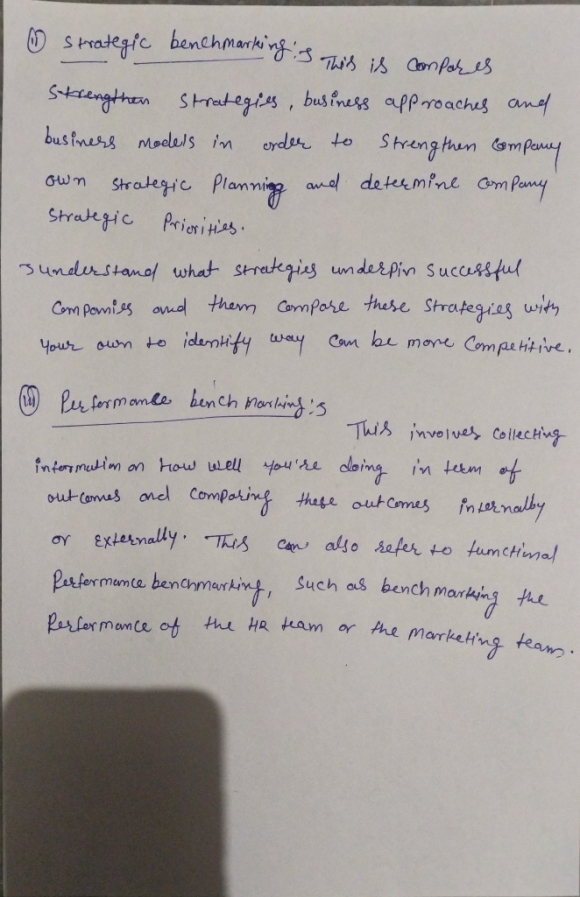 (ii) Strategic benchmarking :→ This is compares
Strengthen strategies, business approaches and
business models in order to strengthen company
own strategic planning and determine company
strategic priorities.
→ understand what strategies underpin successful
companies and them compare these strategies with
your own to identify way can be more competitive.
(iii) Performance benchmarking :→
This involves collecting
information on how well you're doing in term of
outcomes and comparing these outcomes internalby
or externally. This can also refer to functional
performance benchmarking, such as benchmarking the
performance of the HR team or the marketing team.